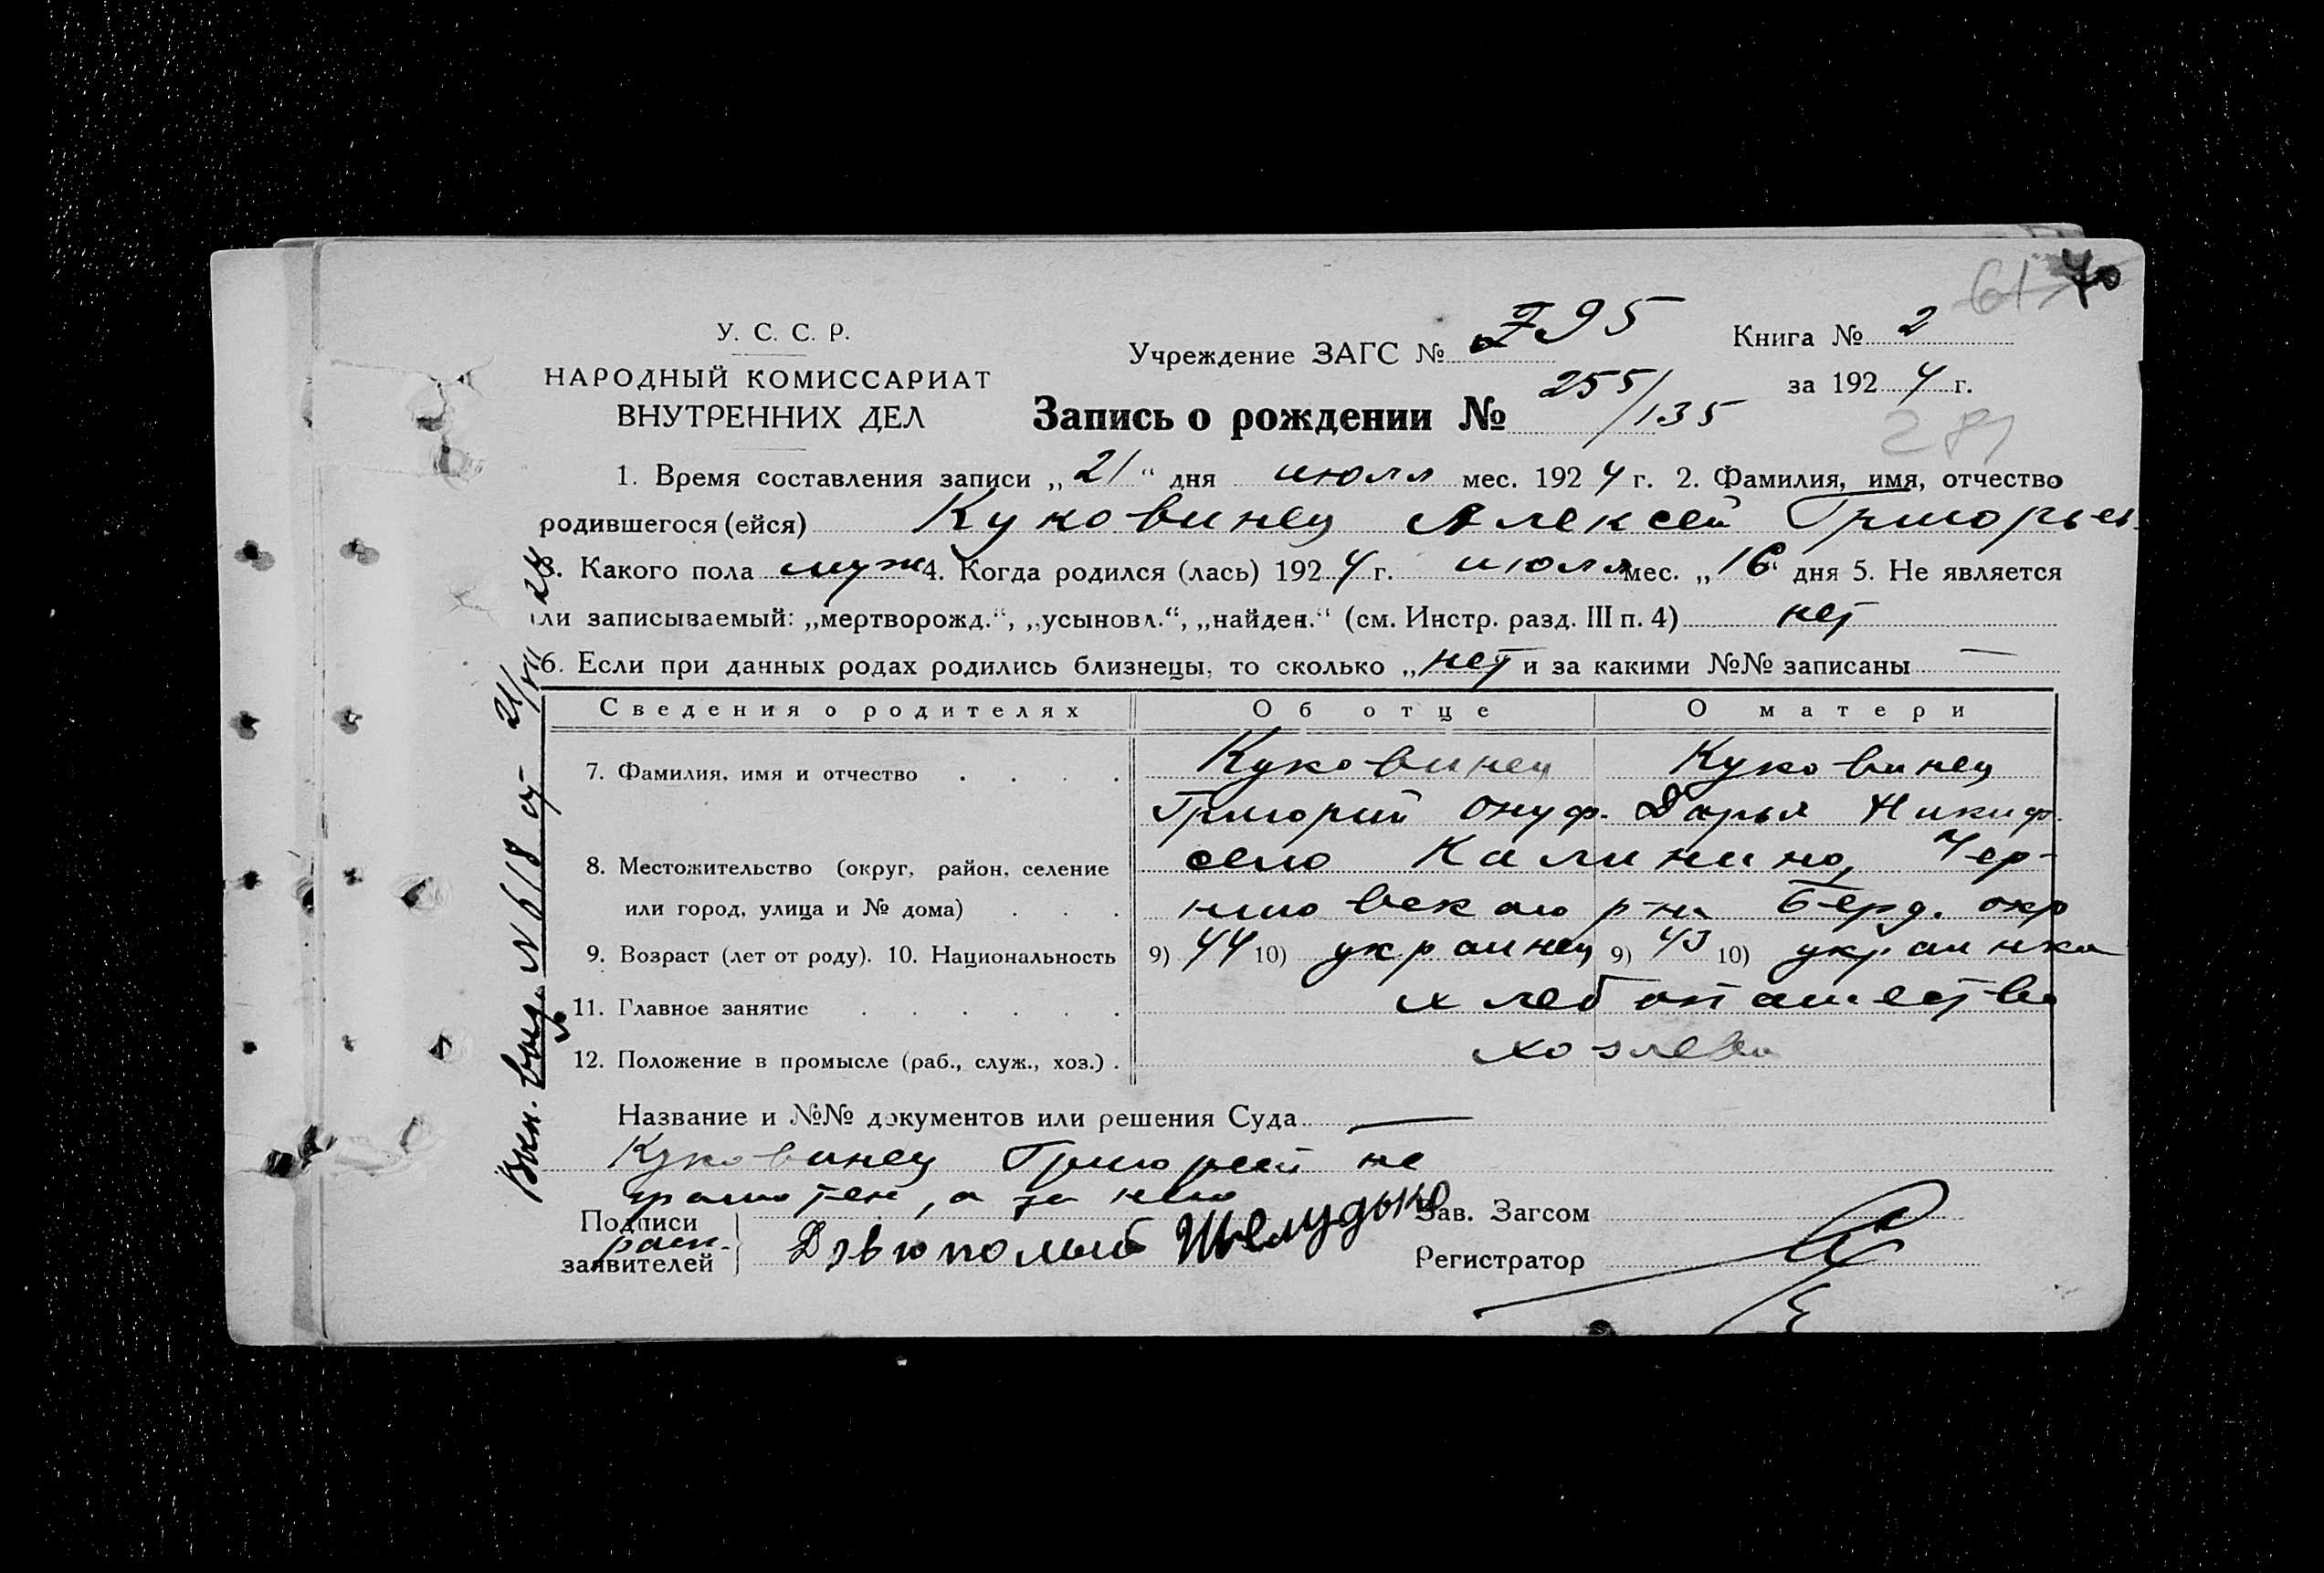 61 70
У. С. С. Р.
НАРОДНЫЙ КОМИССАРИАТ
ВНУТРЕННИХ ДЕЛ
Учреждение ЗАГС № 795
Книга № 2
за 1924 г.
Запись о рождении № 255/135
281
1. Время составления записи „21“ дня июля мес. 1924 г. 2. Фамилия, имя, отчество
родившегося (ейся) Куковинец Алексей Григорьев.
3. Какого пола муж 4. Когда родился (лась) 1924 г. июля мес. „16“ дня 5. Не является
ли записываемый: „мертворожд.“, „усыновл.“, „найден.“ (см. Инстр. разд. III п. 4) нет
6. Если при данных родах родились близнецы, то сколько „нет и за какими №№ записаны —
Сведения о родителях Об отце О матери
7. Фамилия, имя и отчество . . . . Куковинец Куковинец
Григорий Онуф. Дарья Никиф.
8. Местожительство (округ, район, селение село Калинино, Чер-
или город, улица и № дома) . . . ниговского р-на Берд. окр
9. Возраст (лет от роду). 10. Национальность 9) 44 10) украинец 9) 43 10) украинка
11. Главное занятие . . . . . . хлебопашество
12. Положение в промысле (раб., служ., хоз.) . хозяева
Название и №№ документов или решения Суда —
Куковинец Григорий не
грамотен, а за него
Подписи
расп.
заявителей
Зав. Загсом
Регистратор
№ 618 от 21/VII 24